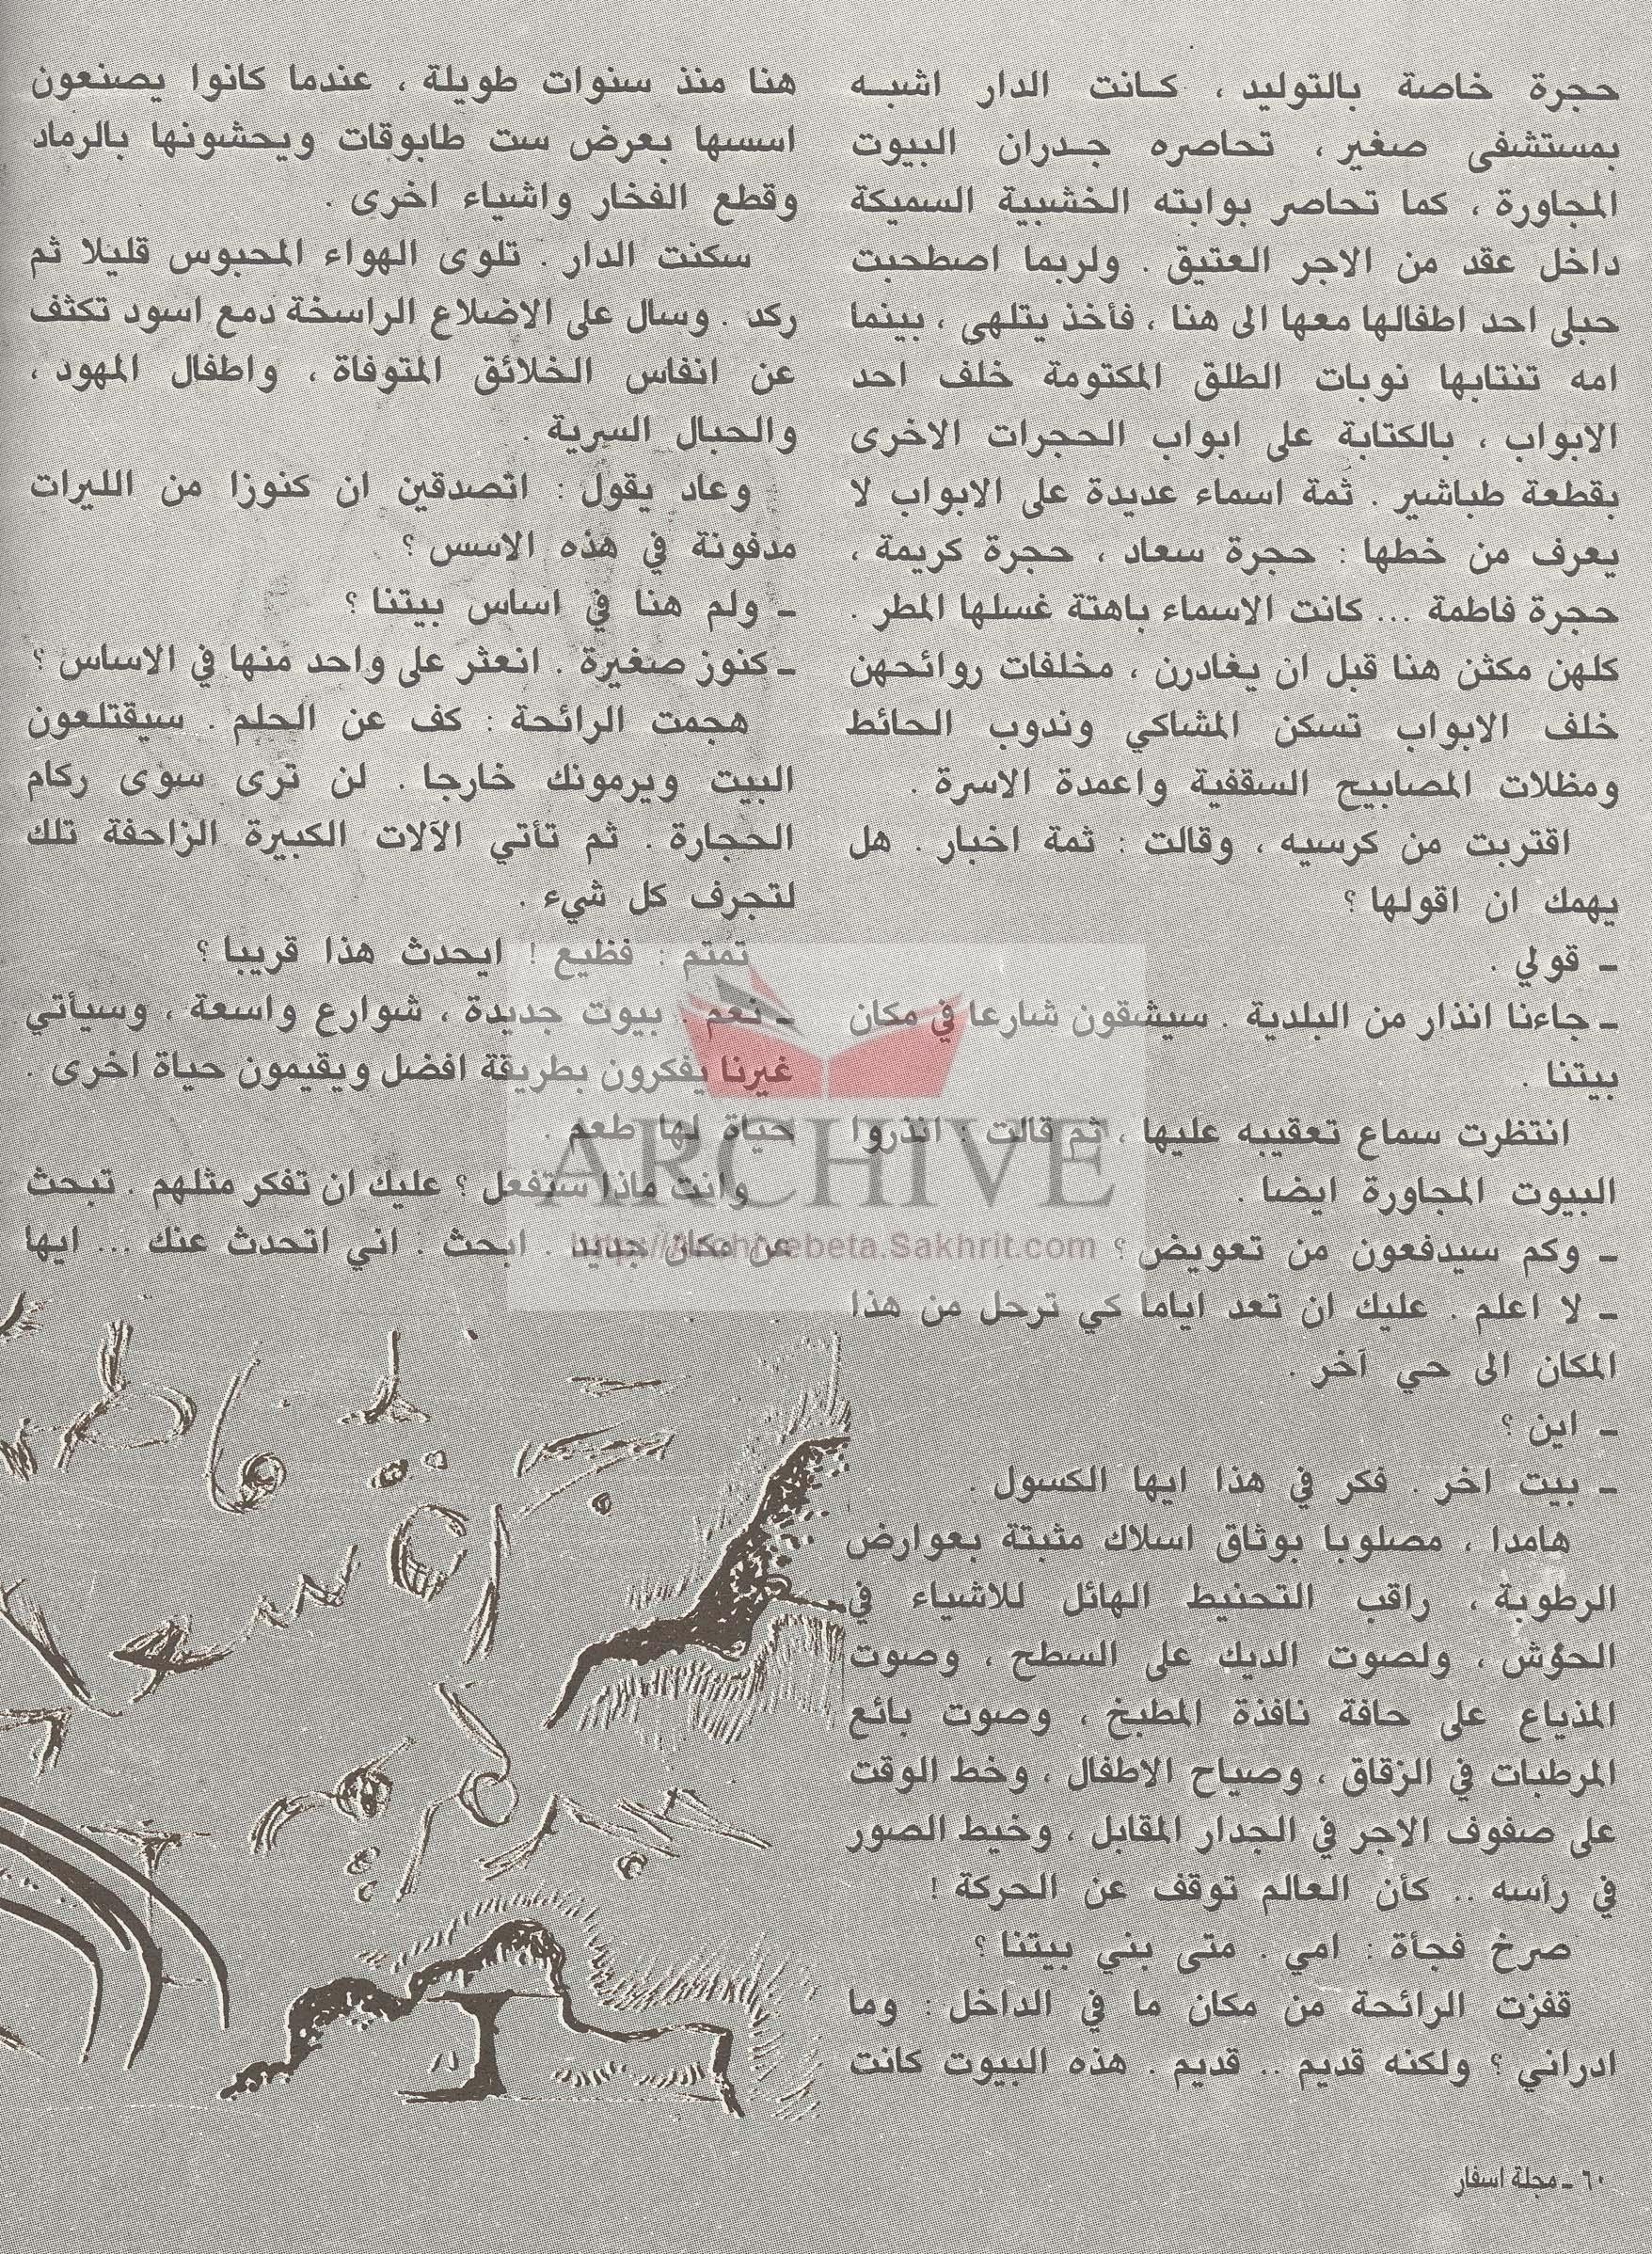 حجرة خاصة بالتوليد ، كانت الدار اشبه
بمستشفى صغير ، تحاصره جدران البيوت
المجاورة ، كما تحاصر بوابته الخشبية السميكة
داخل عقد من الاجر العتيق . ولربما اصطحبت
حبلى احد اطفالها معها الى هنا ، فأخذ يتلهى ، بينما
امه تنتابها نوبات الطلق المكتومة خلف احد
الابواب ، بالكتابة على ابواب الحجرات الاخرى
بقطعة طباشير . ثمة اسماء عديدة على الابواب لا
يعرف من خطها : حجرة سعاد ، حجرة كريمة ،
حجرة فاطمة ... كانت الاسماء باهتة غسلها المطر .
كلهن مكثن هنا قبل ان يغادرن ، مخلفات روائحهن
خلف الابواب تسكن المشاكي وندوب الحائط
ومظلات المصابيح السقفية واعمدة الاسرة .
اقتربت من كرسيه ، وقالت : ثمة اخبار . هل
يهمك ان اقولها ؟
ـ قولي .
ـ جاءنا انذار من البلدية . سيشقون شارعا في مكان
بيتنا .
انتظرت سماع تعقيبه عليها ، ثم قالت : انذروا
البيوت المجاورة ايضا .
ـ وكم سيدفعون من تعويض ؟
ـ لا اعلم . عليك ان تعد اياما كي ترحل من هذا
المكان الى حي آخر .
ـ اين ؟
ـ بيت اخر . فكر في هذا ايها الكسول .
هامدا ، مصلوبا بوثاق اسلاك مثبتة بعوارض
الرطوبة ، راقب التحنيط الهائل للاشياء في
الحوش ، ولصوت الديك على السطح ، وصوت
المذياع على حافة نافذة المطبخ ، وصوت بائع
المرطبات في الزقاق ، وصياح الاطفال ، وخط الوقت
على صفوف الاجر في الجدار المقابل ، وخيط الصور
في رأسه .. كأن العالم توقف عن الحركة !
صرخ فجأة : امي . متى بني بيتنا ؟
قفزت الرائحة من مكان ما في الداخل : وما
ادراني ؟ ولكنه قديم .. قديم . هذه البيوت كانت
هنا منذ سنوات طويلة ، عندما كانوا يصنعون
اسسها بعرض ست طابوقات ويحشونها بالرماد
وقطع الفخار واشياء اخرى .
سكنت الدار . تلوى الهواء المحبوس قليلا ثم
ركد . وسال على الاضلاع الراسخة دمع اسود تكثف
عن انفاس الخلائق المتوفاة ، واطفال المهود ،
والحبال السرية .
وعاد يقول : اتصدقين ان كنوزا من الليرات
مدفونة في هذه الاسس ؟
ـ ولم هنا في اساس بيتنا ؟
ـ كنوز صغيرة . انعثر على واحد منها في الاساس ؟
هجمت الرائحة : كف عن الحلم . سيقتلعون
البيت ويرمونك خارجا . لن ترى سوى ركام
الحجارة . ثم تأتي الآلات الكبيرة الزاحفة تلك
لتجرف كل شيء .
تمتم : فظيع ! ايحدث هذا قريبا ؟
ـ نعم . بيوت جديدة ، شوارع واسعة ، وسيأتي
غيرنا يفكرون بطريقة افضل ويقيمون حياة اخرى .
حياة لها طعم .
وانت ماذا ستفعل ؟ عليك ان تفكر مثلهم . تبحث
عن مكان جديد . ابحث : اني اتحدث عنك ... ايها
ARCHIVE
http://Archivebeta.Sakhrit.com
٦٠ ـ مجلة اسفار